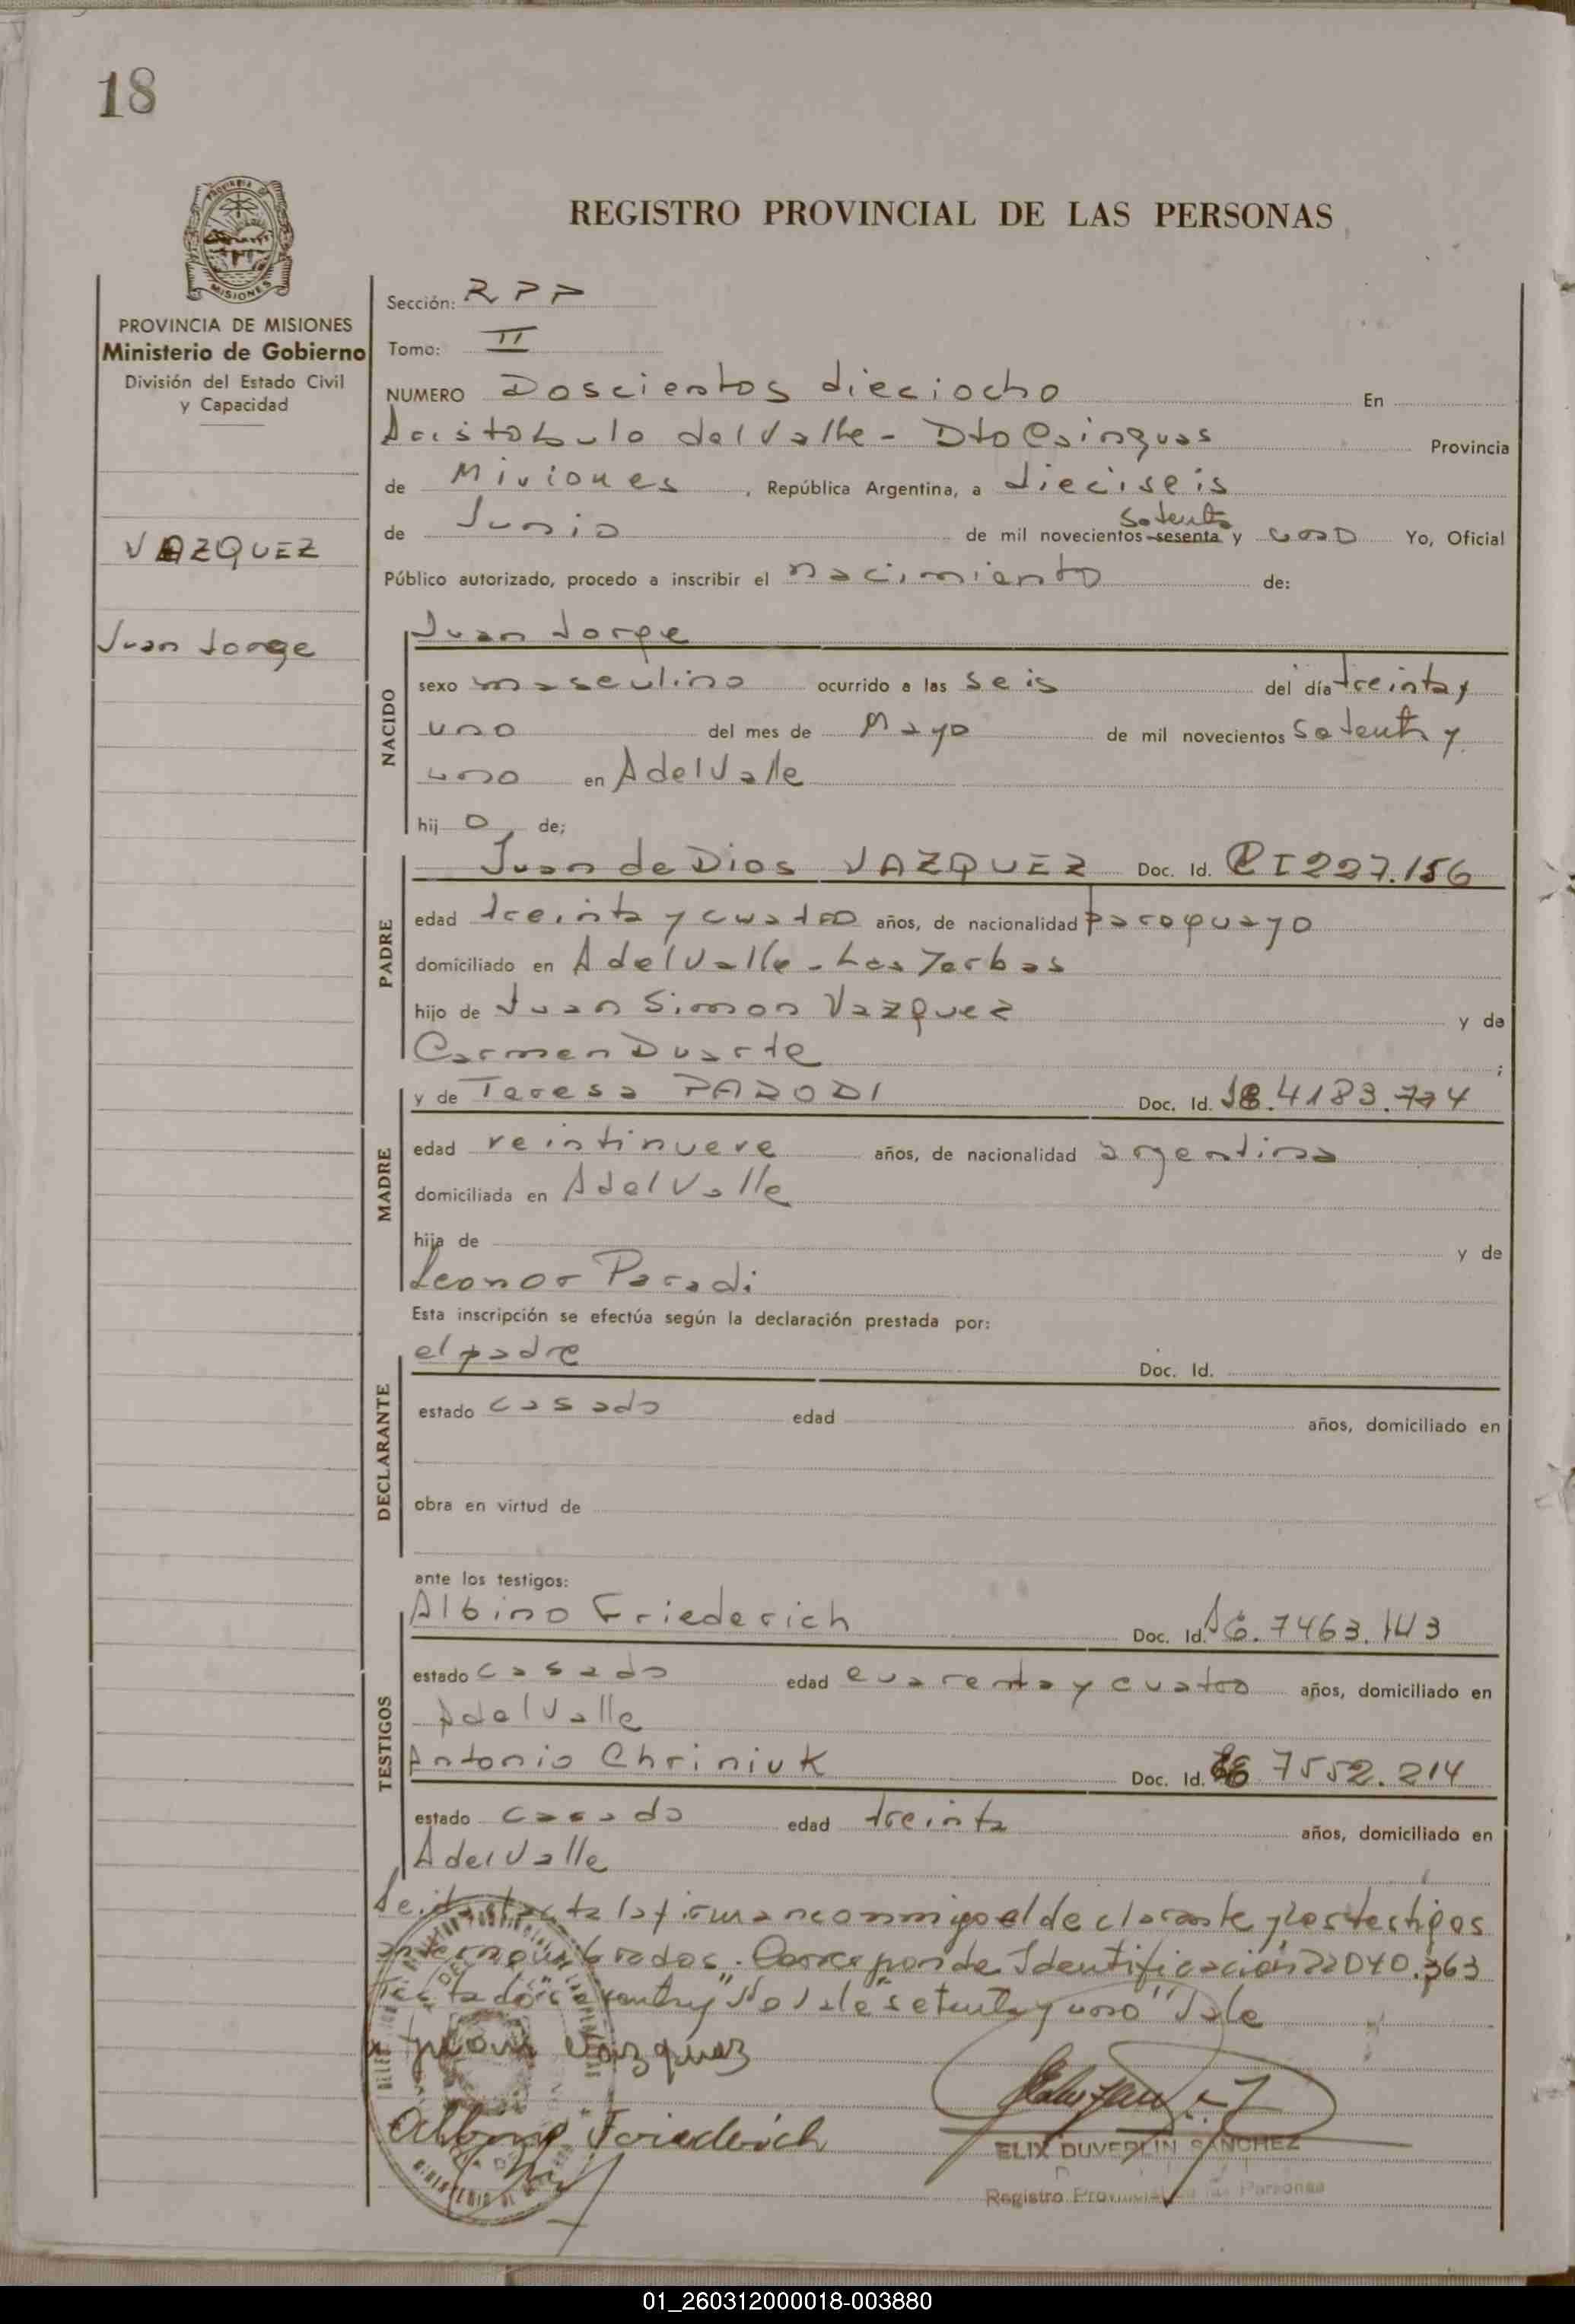 18
REGISTRO PROVINCIAL DE LAS PERSONAS
PROVINCIA DE MISIONES
Ministerio de Gobierno
División del Estado Civil
y Capacidad
VAZQUEZ
Juan Jorge
Sección: RPP
Tomo: II
NUMERO Doscientos dieciocho En
Aristobulo del Valle - Dto Cainguas Provincia
de Misiones, República Argentina, a dieciseis
de Junio de mil novecientos sesenta setenta y uno Yo, Oficial
Público autorizado, procedo a inscribir el nacimiento de:
NACIDO
Juan Jorge
sexo masculino ocurrido a las seis del día treinta y
uno del mes de Mayo de mil novecientos setenta y
uno en A del Valle
hij o de;
PADRE
Juan de Dios VAZQUEZ Doc. Id. CI 227.156
edad treinta y cuatro años, de nacionalidad paraguayo
domiciliado en A del Valle - Las Yerbas
hijo de Juan Simon Vazquez y de
Carmen Duarte ;
MADRE
y de Teresa PARODI Doc. Id. 4183.774
edad veintinueve años, de nacionalidad argentina
domiciliada en A del Valle
hija de y de
Leonor Parodi
Esta inscripción se efectúa según la declaración prestada por:
DECLARANTE
el padre Doc. Id.
estado casado edad años, domiciliado en
obra en virtud de
ante los testigos:
TESTIGOS
Albino Friederich Doc. Id. 7463.143
estado casado edad cuarenta y cuatro años, domiciliado en
A del Valle
Antonio Chriniuk Doc. Id. 7552.214
estado casado edad treinta años, domiciliado en
A del Valle
Leida el acta la firman conmigo el declarante y los testigos
anternombrados. Corresponde Identificación 22040.363
Testado "sesenta y" No Vale "setenta y uno" Vale
Juan Vazquez
Albino Friederich
ELIX DUVERLIN SANCHEZ
Registro Provincial de las Personas
01_260312000018-003880